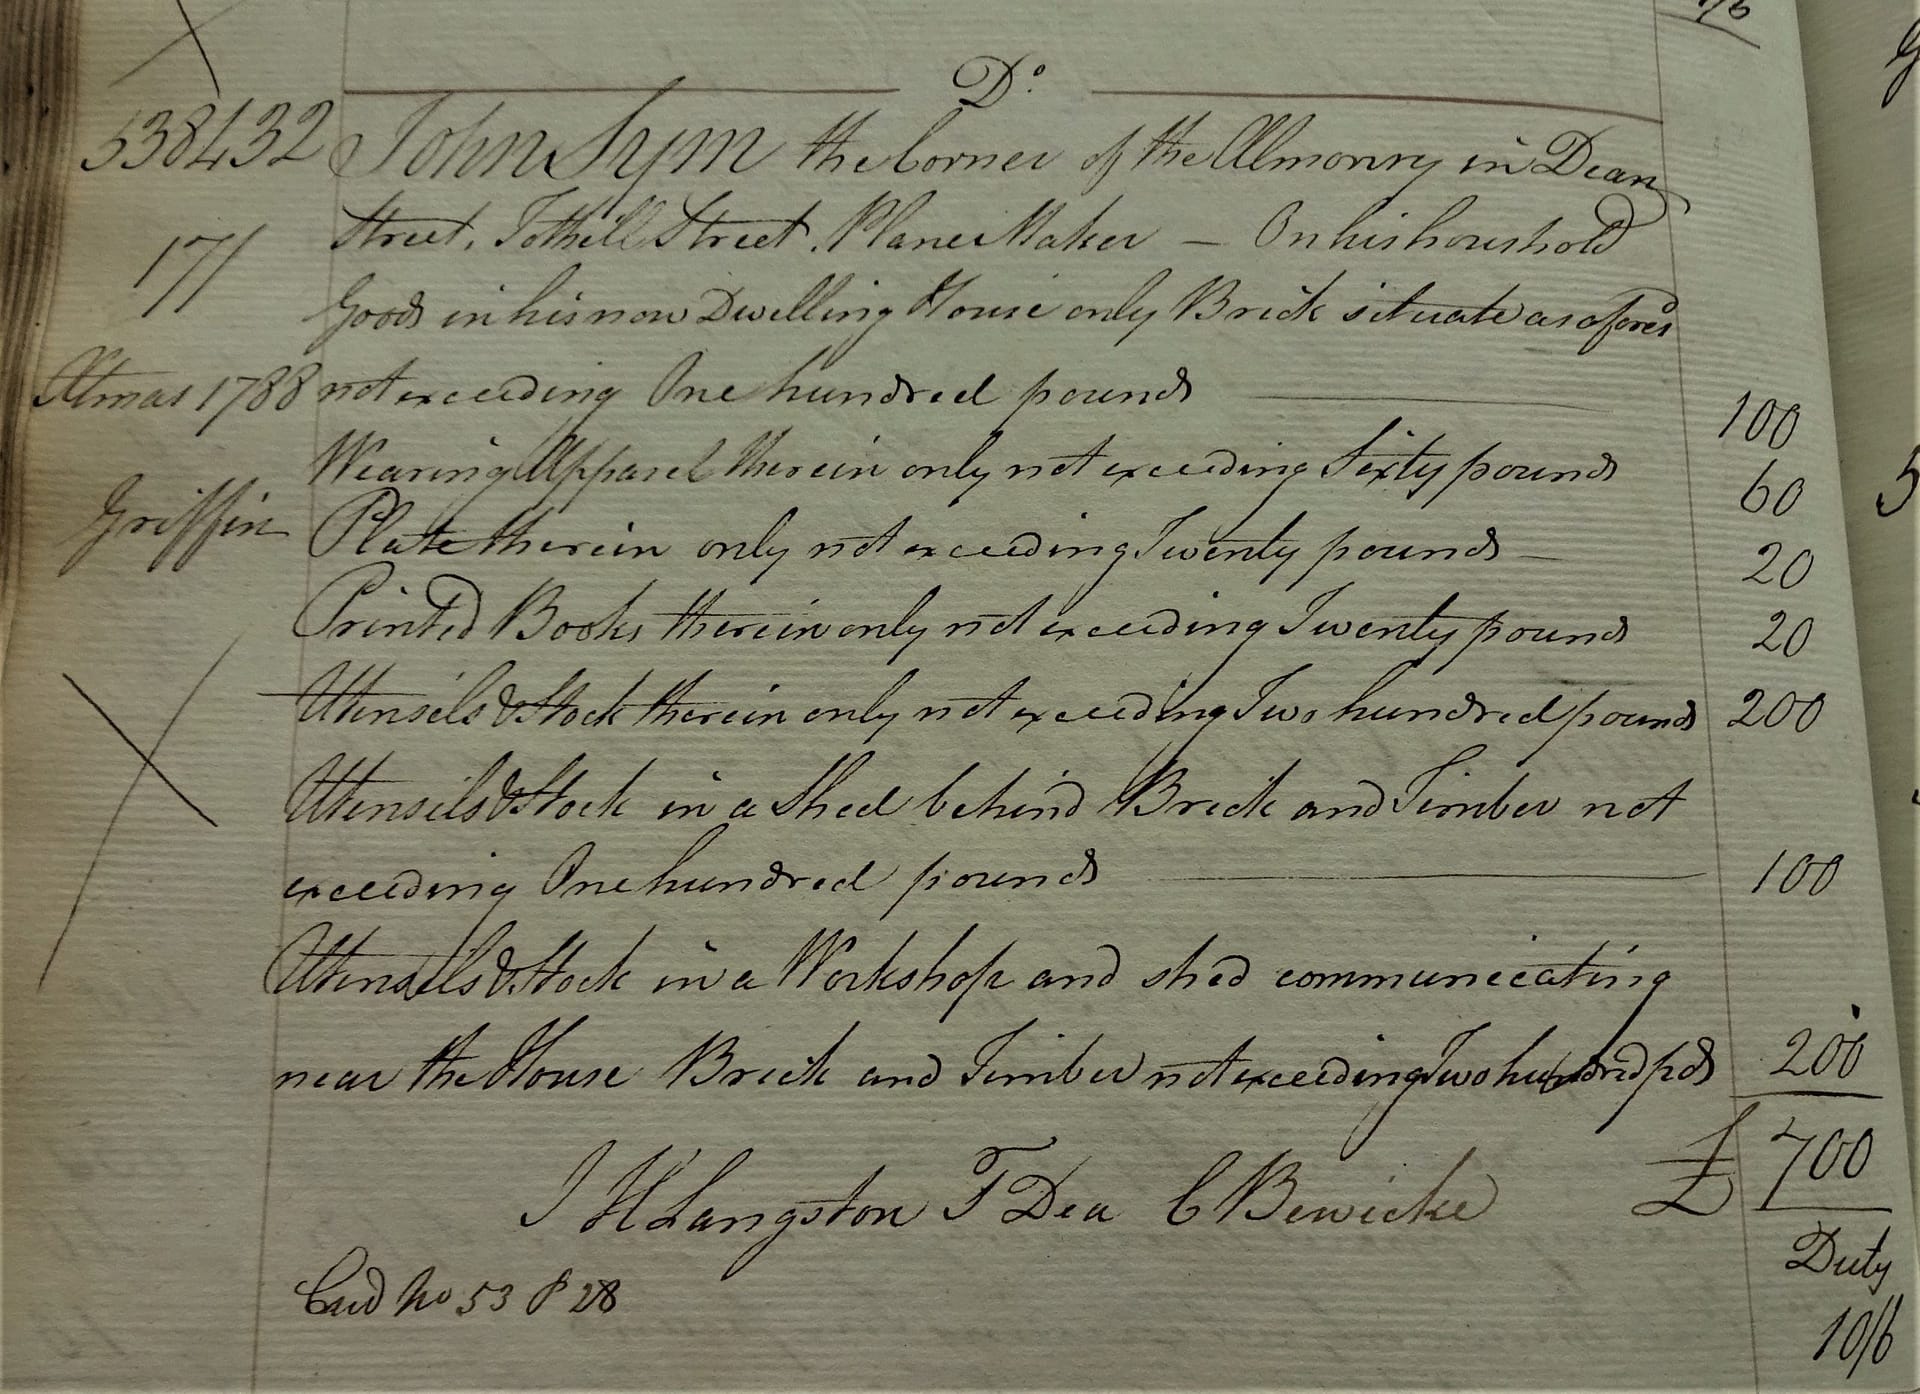 Do
538432 John Sym the Corner of the Almonry in Dean
Street, Tothill Street. Plane Maker — On his houshold
17/
Goods in his now Dwelling House only Brick situate as afores
Xtmas 1788 not exceeding One hundred pounds 100
Wearing Apparel therein only not exceeding Sixty pounds 60
Griffin
Plate therein only not exceeding Twenty pounds 20
Printed Books therein only not exceeding Twenty pounds 20
Utensils & Stock therein only not exceeding Two hundred pounds 200
Utensils & Stock in a Shed behind Brick and Timber not
exceeding One hundred pounds 100
Utensils & Stock in a Workshop and shed communicating
near the House Brick and Timber not exceeding Two hundred pds 200
J H Langston T Dea C Bewicke £ 700
Duty
Card No 53 P 28
10/6